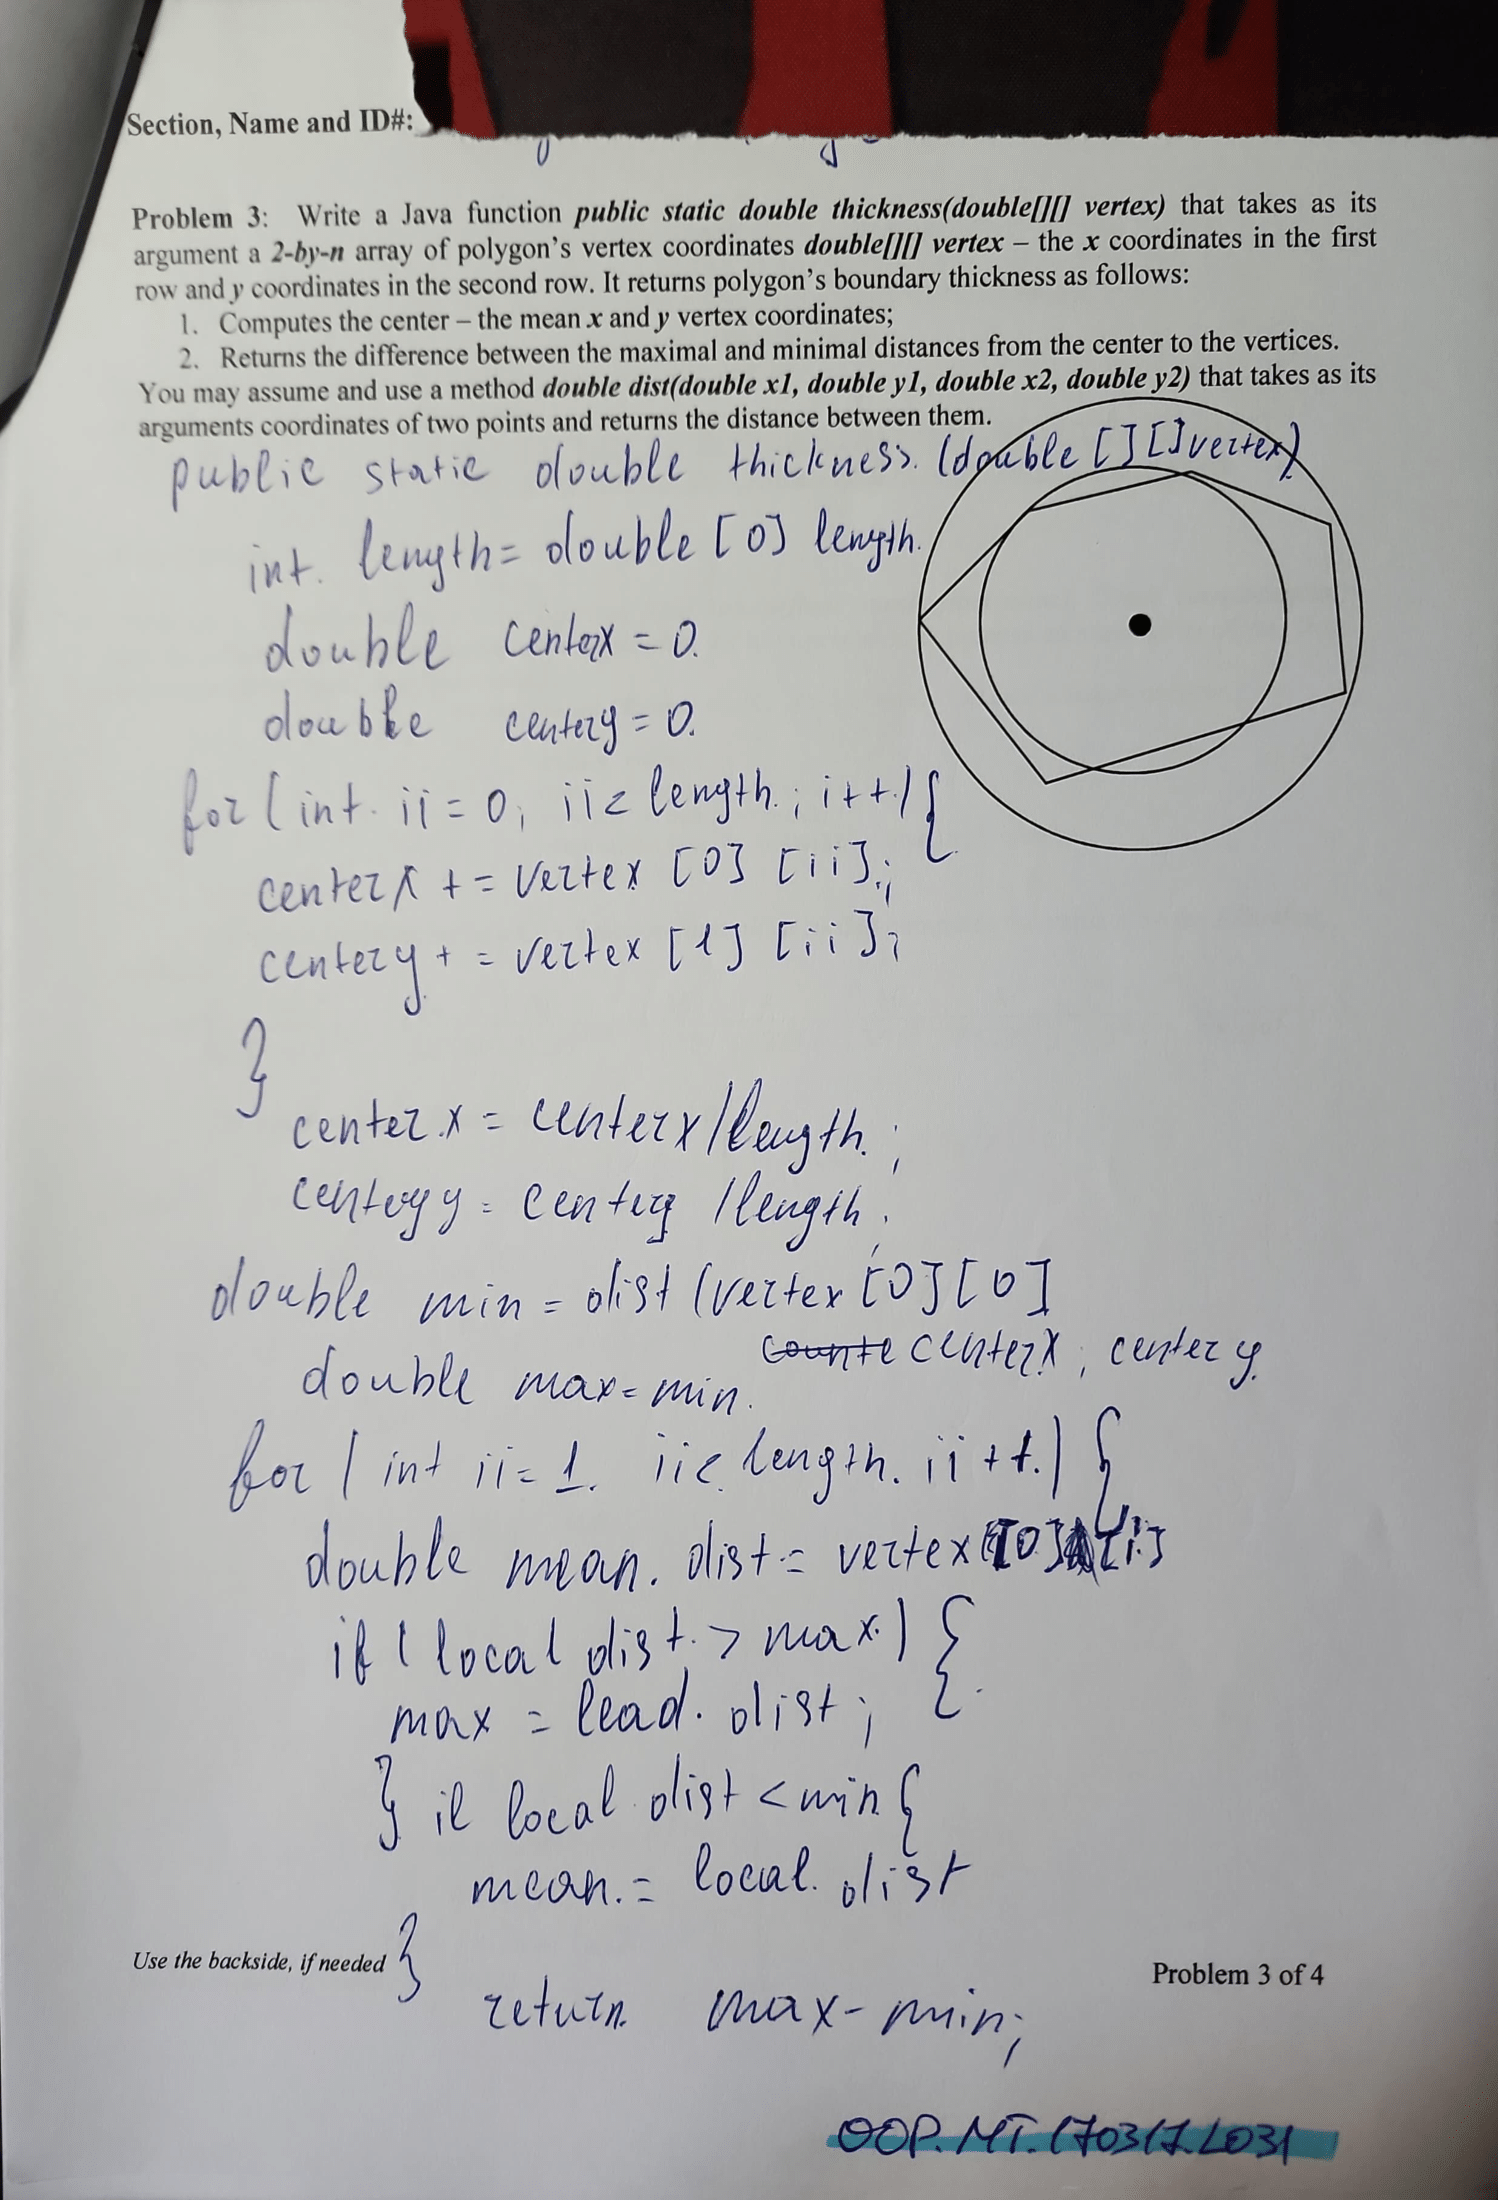 Section, Name and ID#:
Problem 3: Write a Java function public static double thickness(double[][] vertex) that takes as its
argument a 2-by-n array of polygon's vertex coordinates double[][] vertex – the x coordinates in the first
row and y coordinates in the second row. It returns polygon's boundary thickness as follows:
1. Computes the center – the mean x and y vertex coordinates;
2. Returns the difference between the maximal and minimal distances from the center to the vertices.
You may assume and use a method double dist(double x1, double y1, double x2, double y2) that takes as its
arguments coordinates of two points and returns the distance between them.
public static double thickness. (double [] [] vertex)
int. length = double [0] length.
double centerx = 0.
double centery = 0.
for (int. ii = 0; ii < length.; i++.) {
centerx += vertex [0] [ii];
centery += vertex [1] [ii];
}
center.x = centerx/length.;
centery y = centery /length.;
double min = dist (vertex [0] [0]
counte centerx, centery.
double max = min.
for ( int ii = 1. ii < length. ii ++.) {
double mean. dist = vertex [0] [i]
if ( local dist. > max.) {
max = lead. dist;
} il local dist < min {
mean. = local. dist
Use the backside, if needed }
Problem 3 of 4
return max - min;
OOP.MT.170317.L031